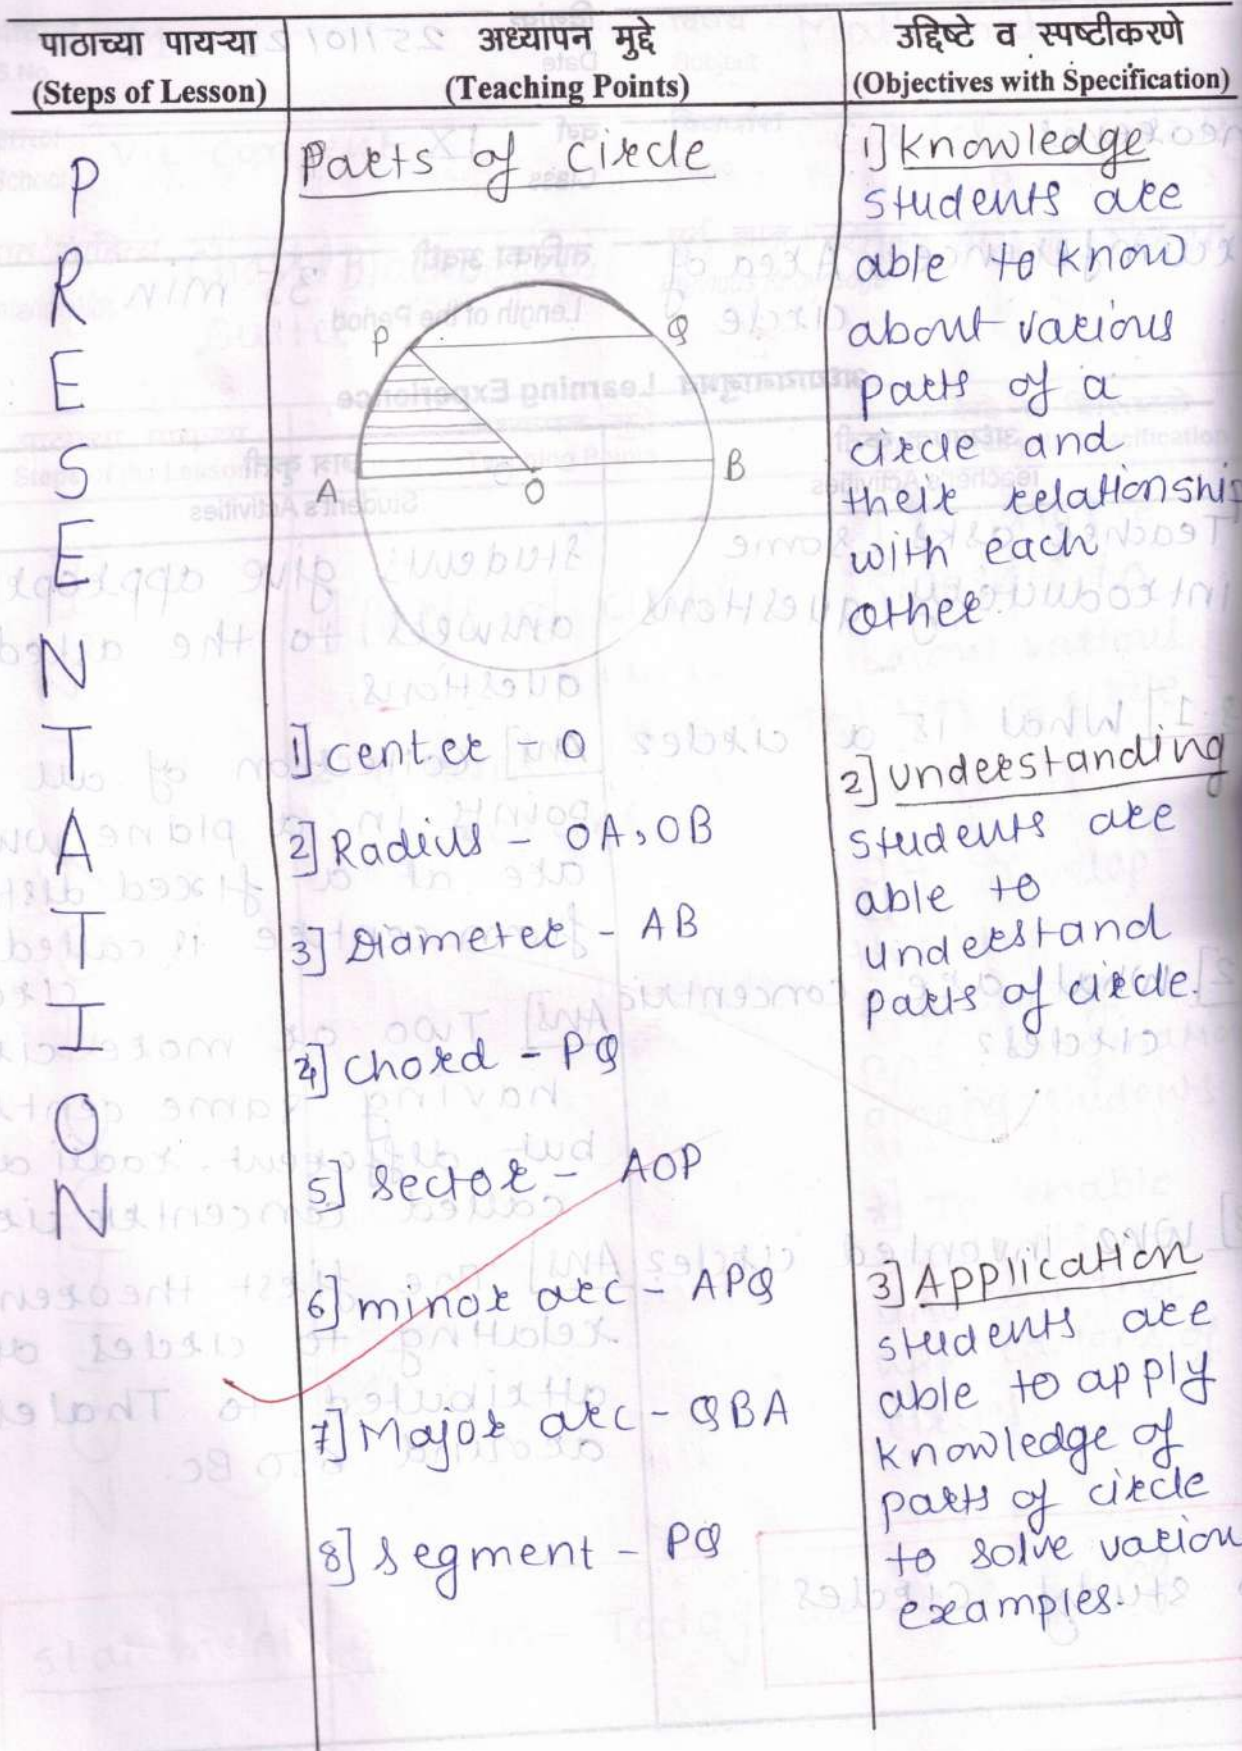 पाठाच्या पायऱ्या
(Steps of Lesson)
अध्यापन मुद्दे
(Teaching Points)
उद्दिष्टे व स्पष्टीकरणे
(Objectives with Specification)
P
R
E
S
E
N
T
A
T
I
O
N
Parts of circle
P
Q
A
O
B
1] center - O
2] Radius - OA, OB
3] Diameter - AB
4] chord - PQ
5] Sector - AOP
6] minor arc - APQ
7] Major arc - QBA
8] Segment - PQ
1] Knowledge
students are
able to know
about various
parts of a
circle and
their relationship
with each
other.
2] Understanding
students are
able to
understand
parts of circle.
3] Application
students are
able to apply
knowledge of
parts of circle
to solve variou
examples.